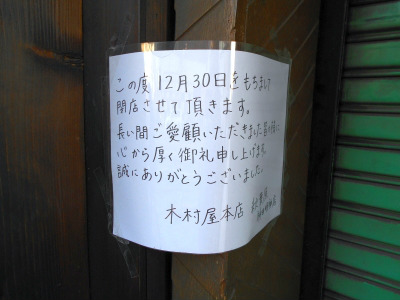 この度12月30日をもちまして
閉店させて頂きます。
長い間ご愛顧いただきました皆様に
心から厚く御礼申し上げます。
誠にありがとうございました。
木村屋本店